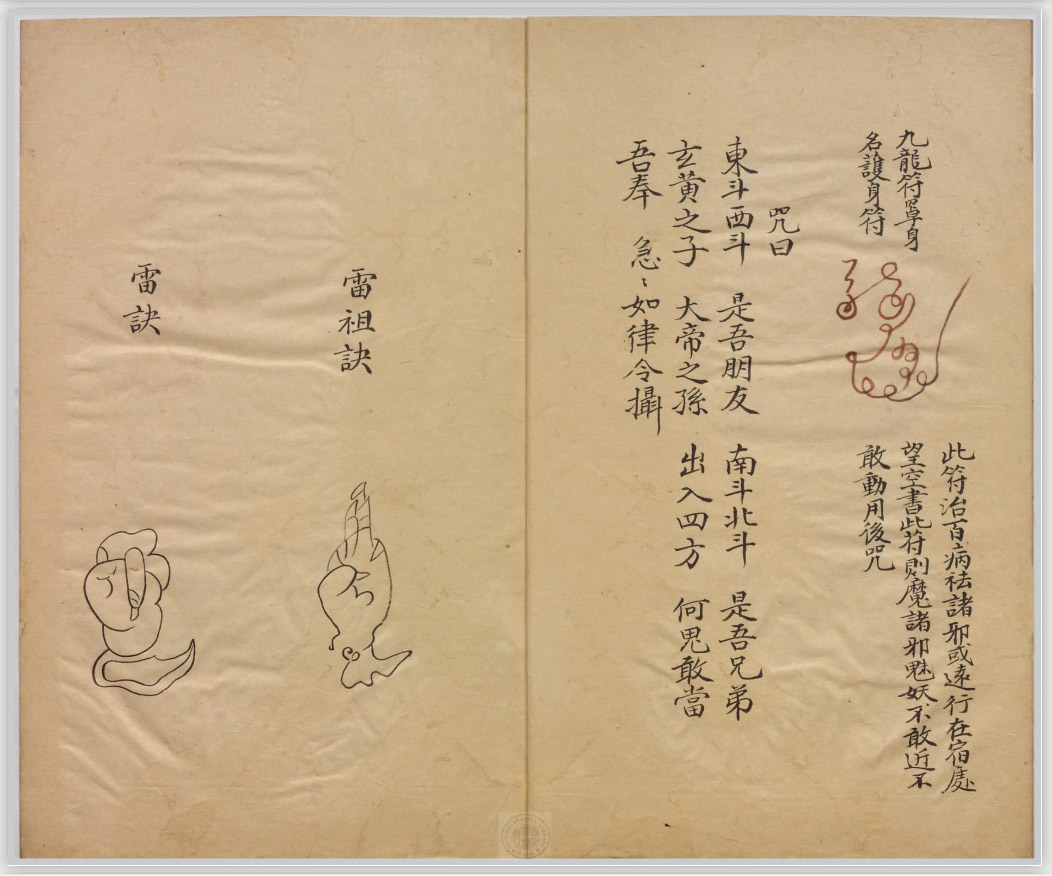 九龍符罩身
名護身符
此符治百病祛諸邪或遠行在宿處
望空書此符則魔諸邪魅妖不敢近不
敢動用後咒
咒曰
東斗西斗 是吾朋友 南斗北斗 是吾兄弟
玄黄之子 大帝之孫 出入四方 何鬼敢當
吾奉 急〻如律令攝
雷祖訣
雷訣